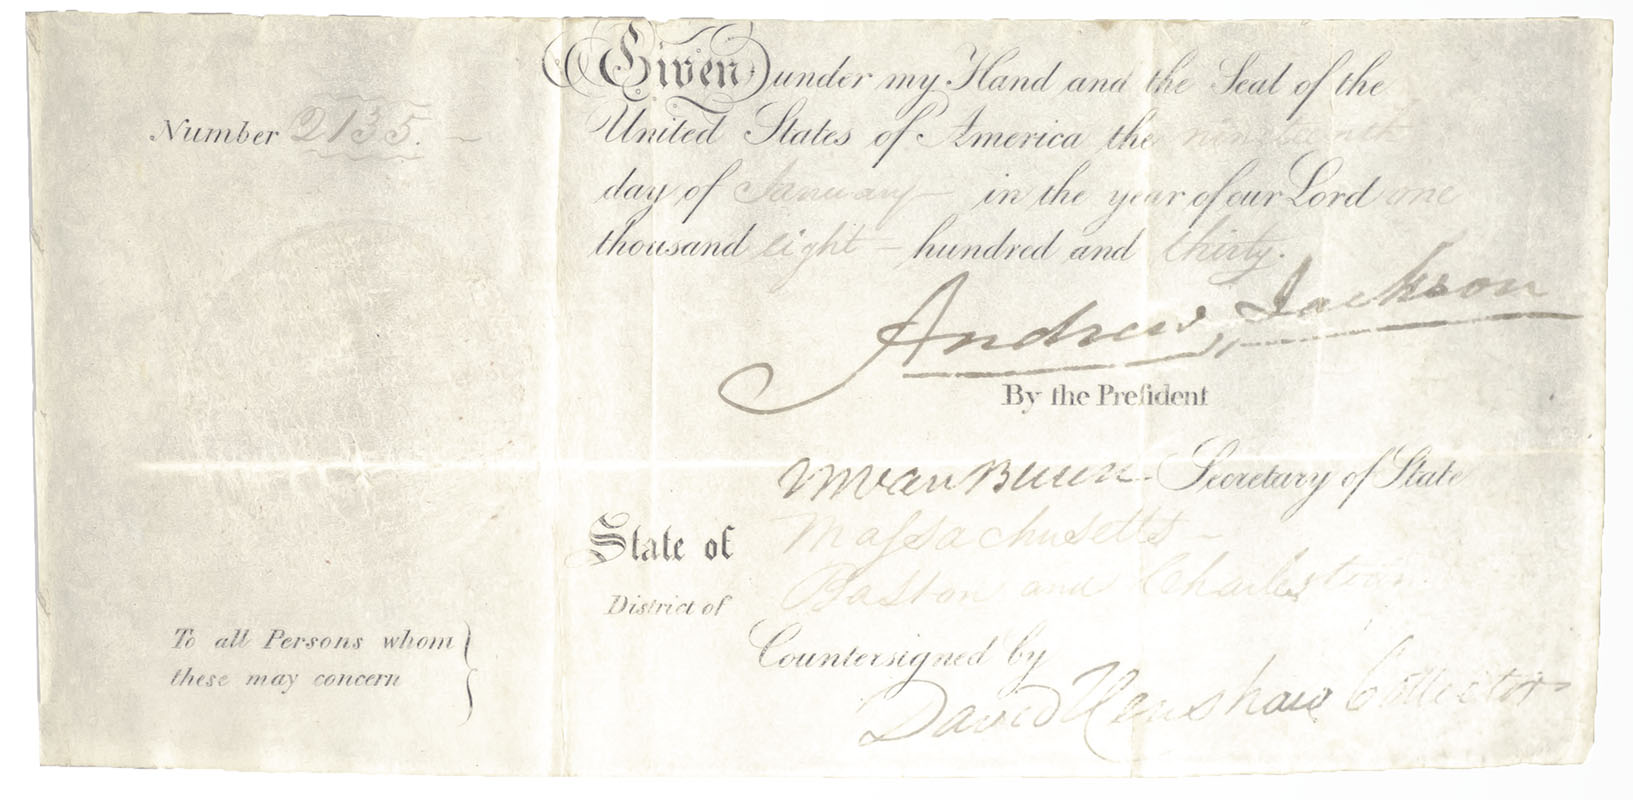 Given under my Hand and the Seal of the
Number 2135.
United States of America the nineteenth
day of January in the year of our Lord one
thousand eight hundred and thirty.
Andrew Jackson
By the Preſident
M Van Buren Secretary of State
State of Maſsachusetts
District of Boston and Charlestown
To all Persons whom
these may concern
Countersigned by
David Henshaw Collector